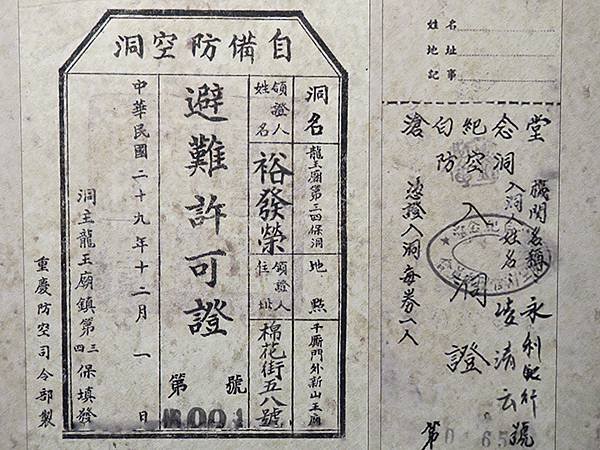 自備防空洞
洞名
龍王廟第三四保洞
地點
千厮門外新山王廟
領證人姓名
裕發榮
領證人住址
棉花街五八號
避難許可證
第 號
中華民國二十九年十二月一日
洞主龍王廟鎮第三四保填發
重慶防空司令部製
姓名
地址
記事
滄白紀念堂
防空洞
入洞證
機關名稱 永利紀行
入洞人姓名 凌清云
憑證入洞每券一人
第 號